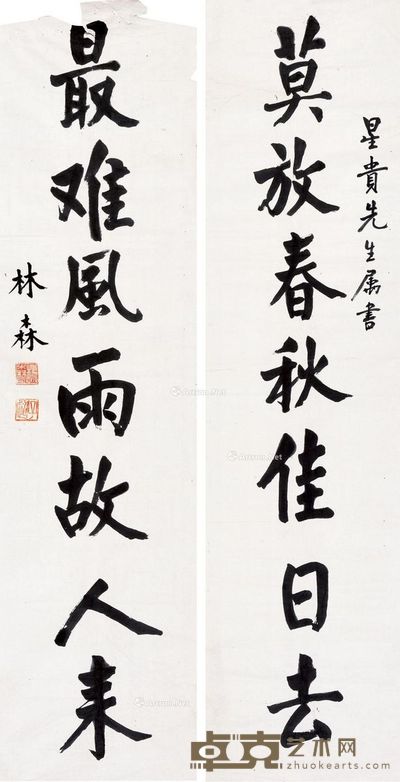 星貴先生属書
莫放春秋佳日去
最难風雨故人来
林森
卓克艺术网
zhuokearts.com